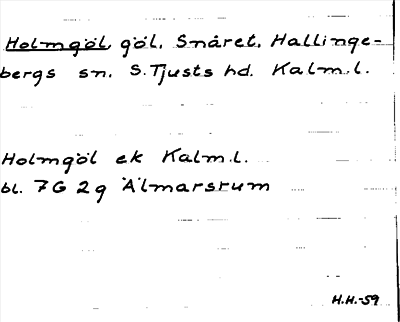 Holmgöl, göl, Snåret, Hallinge-
bergs sn. S. Tjusts hd. Kalm.l.
Holmgöl ek Kalm.l.
bl. 7G 2g Älmarsrum
H.H.-59